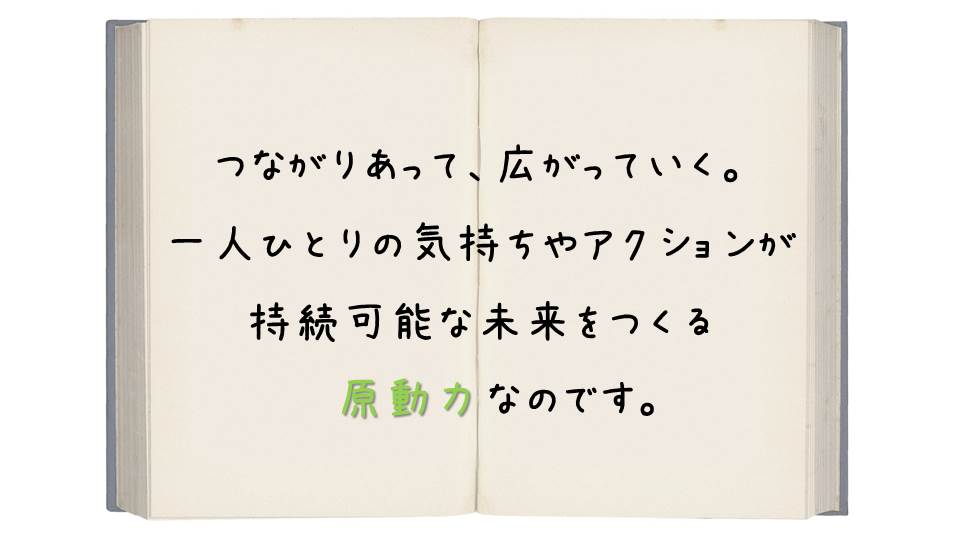 つながりあって、広がっていく。
一人ひとりの気持ちやアクションが
持続可能な未来をつくる
原動力なのです。